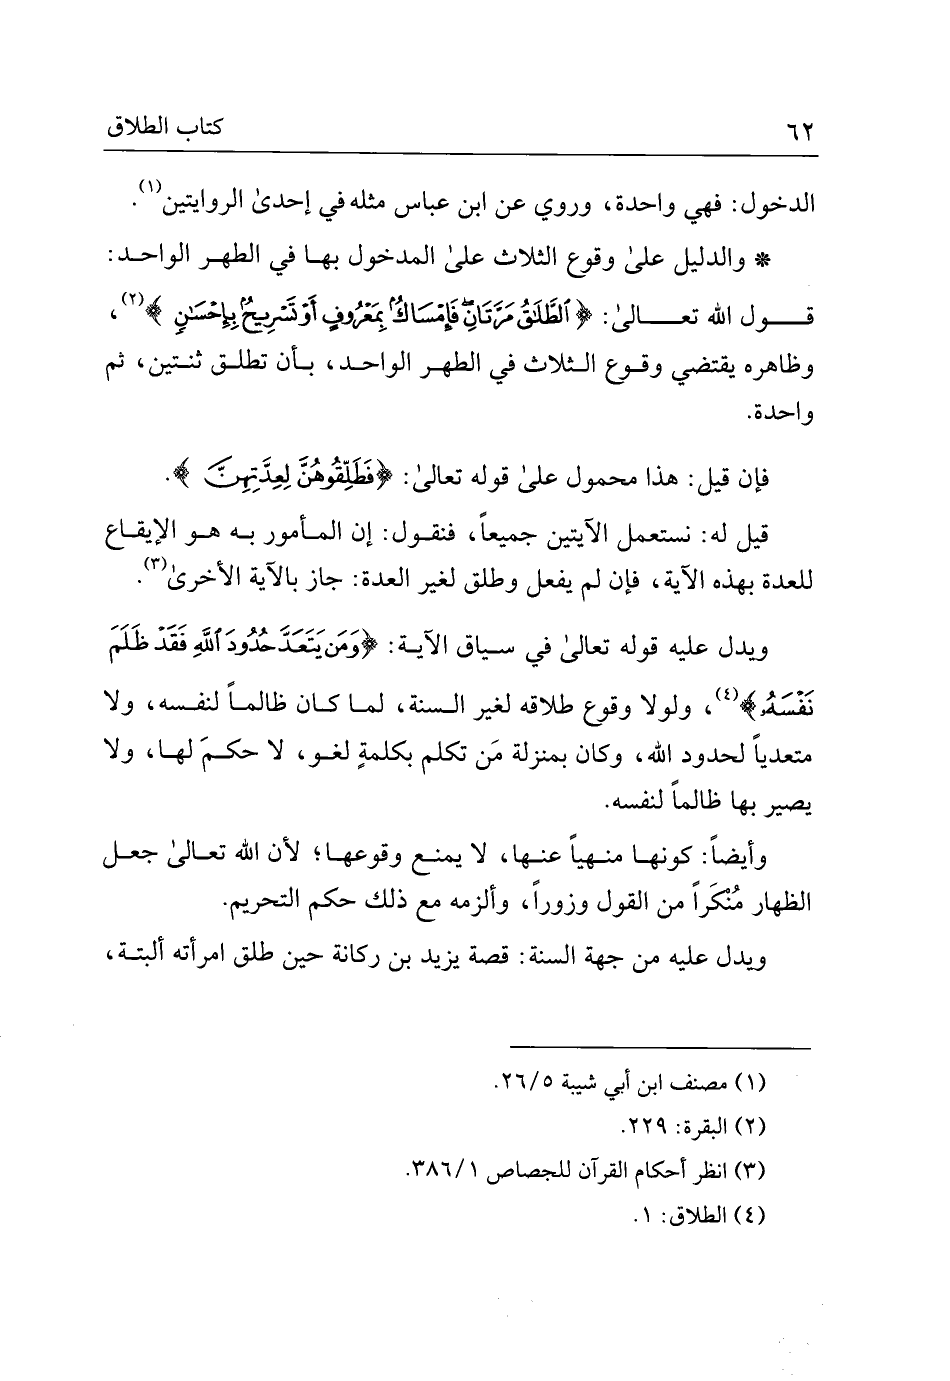 ٦٢ كتاب الطلاق
الدخول: فهي واحدة، وروي عن ابن عباس مثله في إحدىٰ الروايتين(١).
* والدليل علىٰ وقوع الثلاث علىٰ المدخول بهـا في الطهـر الواحـد:
قـــول الله تعـــالىٰ: ﴿ٱلطَّلَٰقُ مَرَّتَانِۖ فَإِمْسَاكُۢ بِمَعْرُوفٍ أَوْ تَسْرِيحُۢ بِإِحْسَٰنٍ﴾(٢)،
وظاهره يقتضي وقـوع الـثلاث في الطهـر الواحـد، بـأن تطلـق ثنـتين، ثم
واحدة.
فإن قيل: هذا محمول علىٰ قوله تعالىٰ: ﴿فَطَلِّقُوهُنَّ لِعِدَّتِهِنَّ﴾.
قيل له: نستعمل الآيتين جميعاً، فنقـول: إن المـأمور بـه هـو الإيقـاع
للعدة بهذه الآية، فإن لم يفعل وطلق لغير العدة: جاز بالآية الأخرىٰ(٣).
ويدل عليه قوله تعالىٰ في سـياق الآيـة: ﴿وَمَن يَتَعَدَّ حُدُودَ ٱللَّهِ فَقَدْ ظَلَمَ
نَفْسَهُۥ﴾(٤)، ولولا وقوع طلاقه لغير السـنة، لمـا كـان ظالمـاً لنفسـه، ولا
متعدياً لحدود الله، وكان بمنزلة مَن تكلم بكلمةٍ لغـو، لا حكـمَ لهـا، ولا
يصير بها ظالماً لنفسه.
وأيضاً: كونهـا منـهياً عنـها، لا يمنـع وقوعهـا؛ لأن الله تعـالىٰ جعـل
الظهار مُنْكَراً من القول وزوراً، وألزمه مع ذلك حكم التحريم.
ويدل عليه من جهة السنة: قصة يزيد بن ركانة حين طلق امرأته ألبتـة،
(١) مصنف ابن أبي شيبة ٢٦/٥.
(٢) البقرة: ٢٢٩.
(٣) انظر أحكام القرآن للجصاص ٣٨٦/١.
(٤) الطلاق: ١.